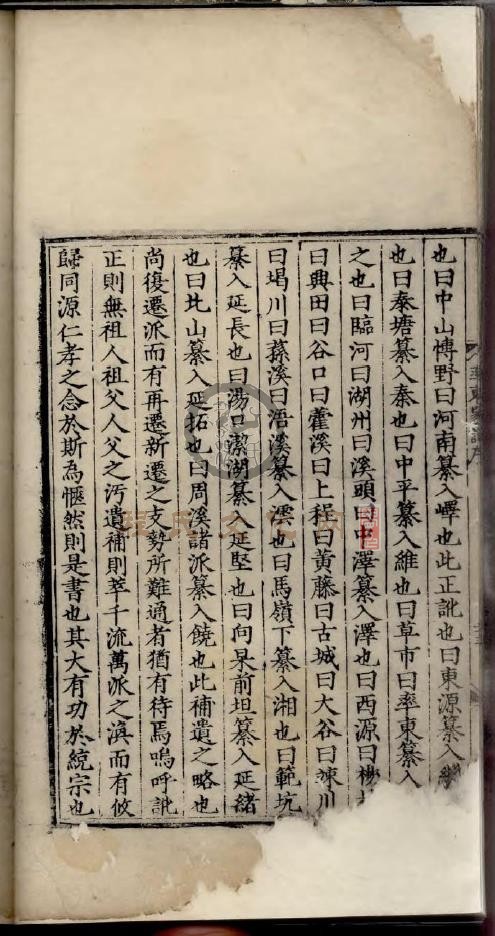 也曰中山博野曰河南纂入嶧也此正訛也曰東源纂入
也曰泰塘纂入秦也曰中平纂入維也曰草市曰率東纂入
之也曰臨河曰湖州曰溪頭曰中澤纂入澤也曰西源曰
曰興田曰谷口曰藿溪曰上程曰黃藤曰古城曰大谷曰涑川
曰堨川曰蓀溪曰浯溪纂入澐也曰馬嶺下纂入湘也曰範坑
纂入延長也曰湯口潔湖纂入延堅也曰向杲前坦纂入延緒
也曰北山纂入延拓也曰周溪諸派纂入饒也此補遺之略也
尚復遷派而有再遷新遷之支勢所難通者猶有待焉嗚呼訛
正則無祖人祖父人父之汚遺補則萃千流萬派之渙而有攸
歸同源仁孝之念於斯為愜然則是書也其大有功於統宗也